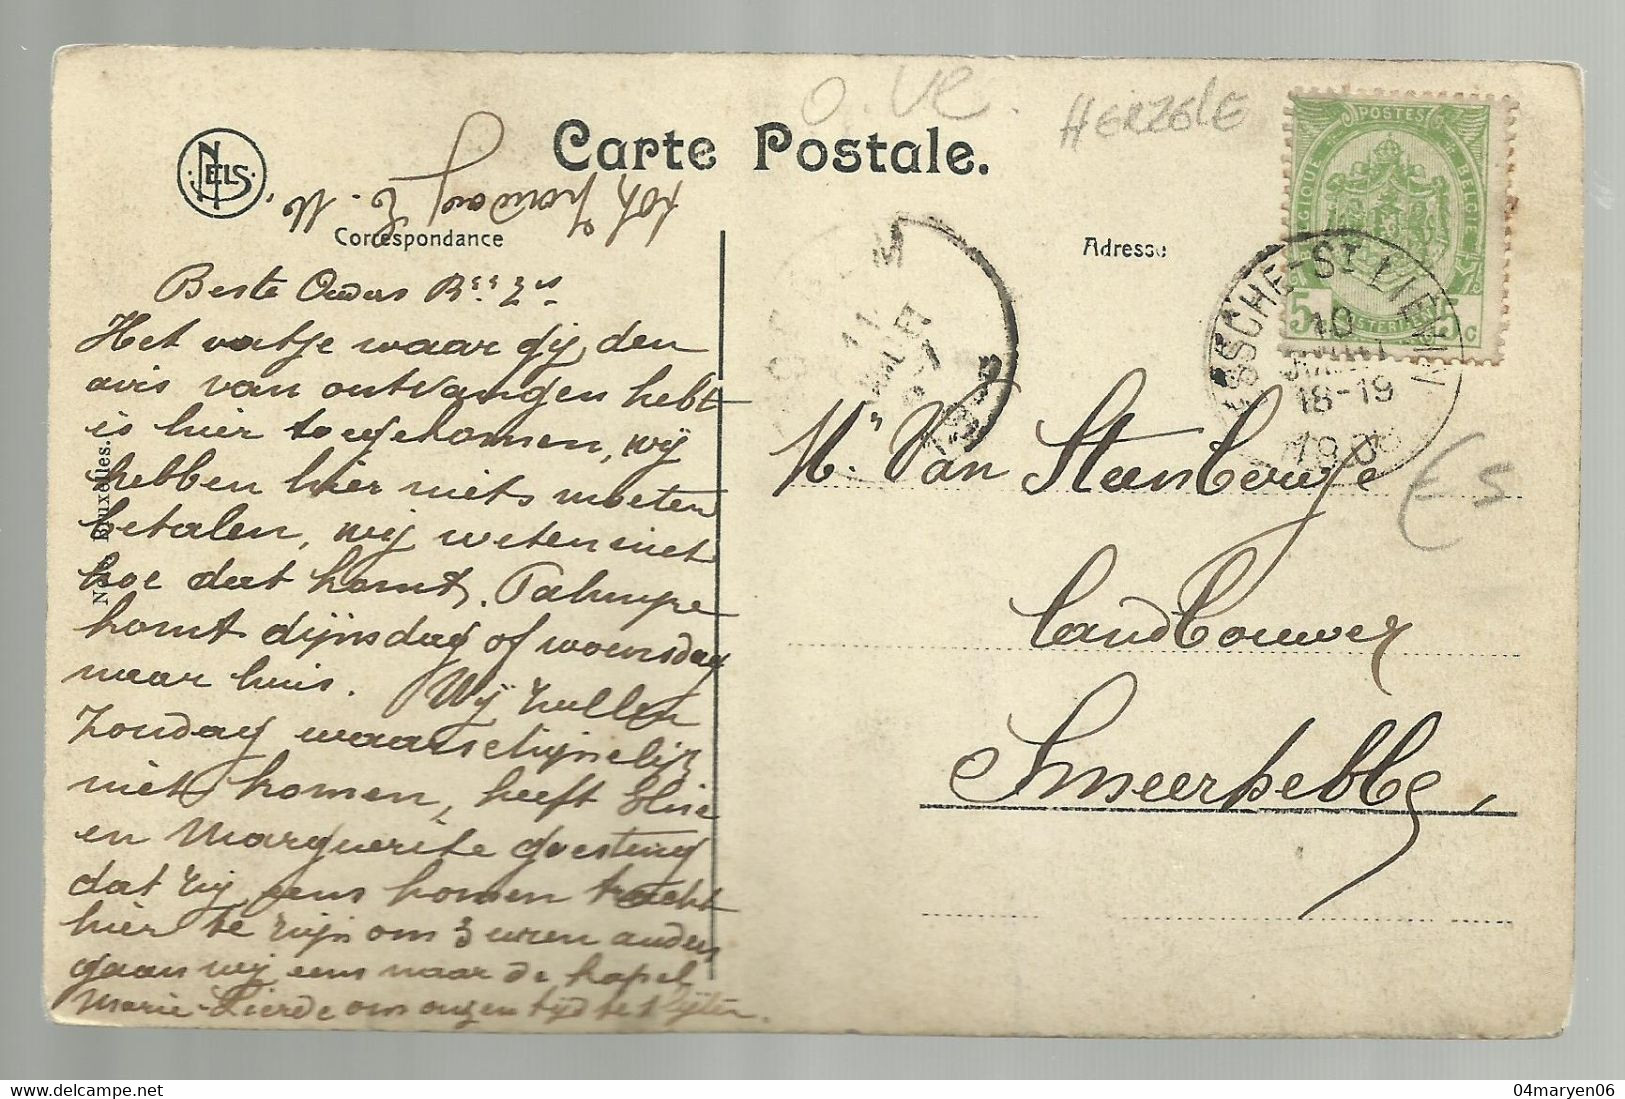 O. Ve.
HERZELE
Carte Postale.
NELS
Correspondance
Adresse
POSTES
BELGIQUE
BELGIE
5 5c
ESSCHE-ST LIEVIN
10
18-19
11
Beste Ouders
Het vatje waar gij den
avis van ontvangen hebt
is hier toegekomen, wij
hebben hier niets moeten
betalen, wij weten niet
hoe dat komt.
komt dijnsdag of woensdag
naar huis. Wij zullen
Zondag waarschijnelijk
niet komen, heeft Elise
en Marguerite goesting
dat zij eens komen tracht
hier te zijn om 3 uren anders
gaan wij eens naar de kapel
Marie-Lierde om onzen tijd te slijten.
tot Zondag E. M.
Mr. Van Steenberge
landbouwer
Smeerhebbe
Nels, Bruxelles.
€ 5
delcampe.net
04maryen06